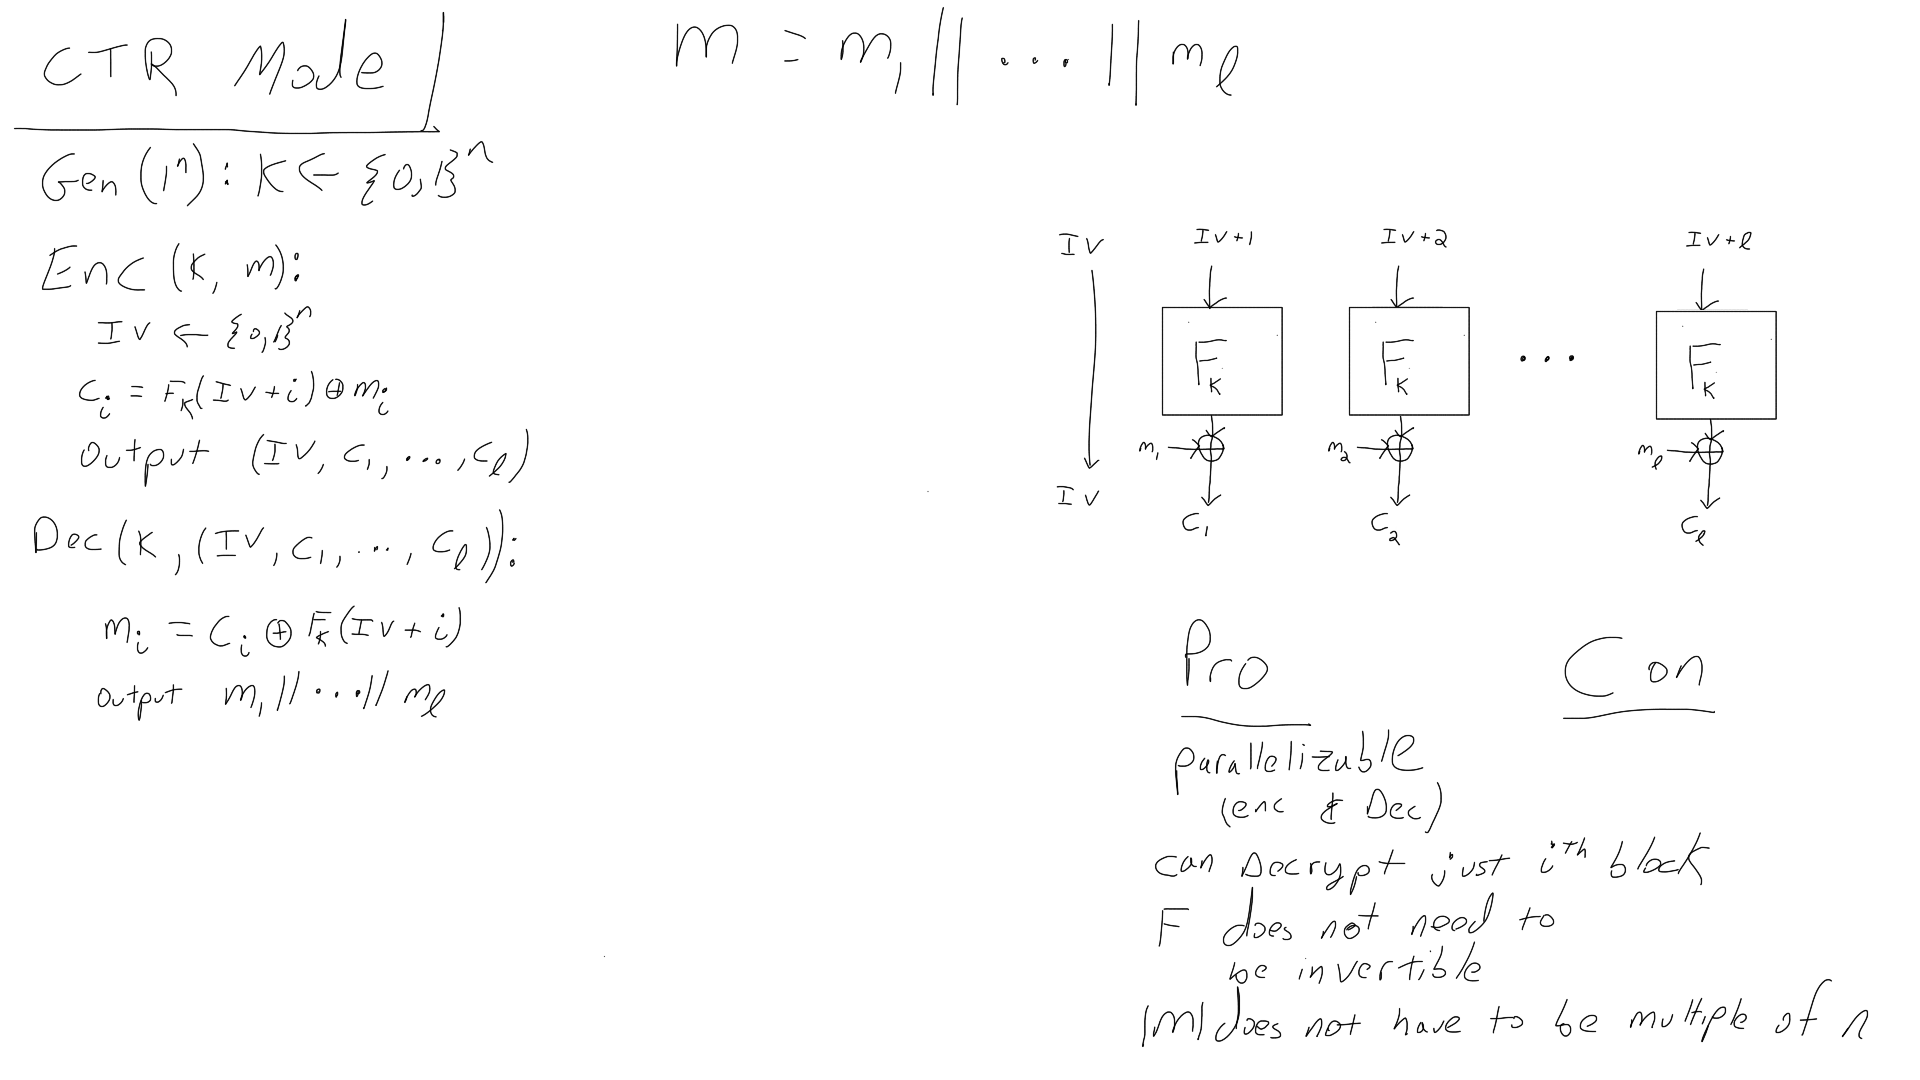 CTR Mode
m = m₁ || ... || mₗ
Gen(1ⁿ): K ← {0,1}ⁿ
Enc(K, m):
IV ← {0,1}ⁿ
Cᵢ = F_K(IV+i) ⊕ mᵢ
Output (IV, C₁, ..., Cₗ)
Dec(K, (IV, C₁, ..., Cₗ)):
mᵢ = Cᵢ ⊕ F_K(IV+i)
Output m₁ || ... || mₗ
IV IV+1 IV+2 IV+ℓ
F_K F_K ... F_K
m₁ m₂ mₗ
IV C₁ C₂ Cₗ
Pro Con
parallelizable
(enc & Dec)
can Decrypt just iᵗʰ block
F does not need to
be invertible
|M| does not have to be multiple of n